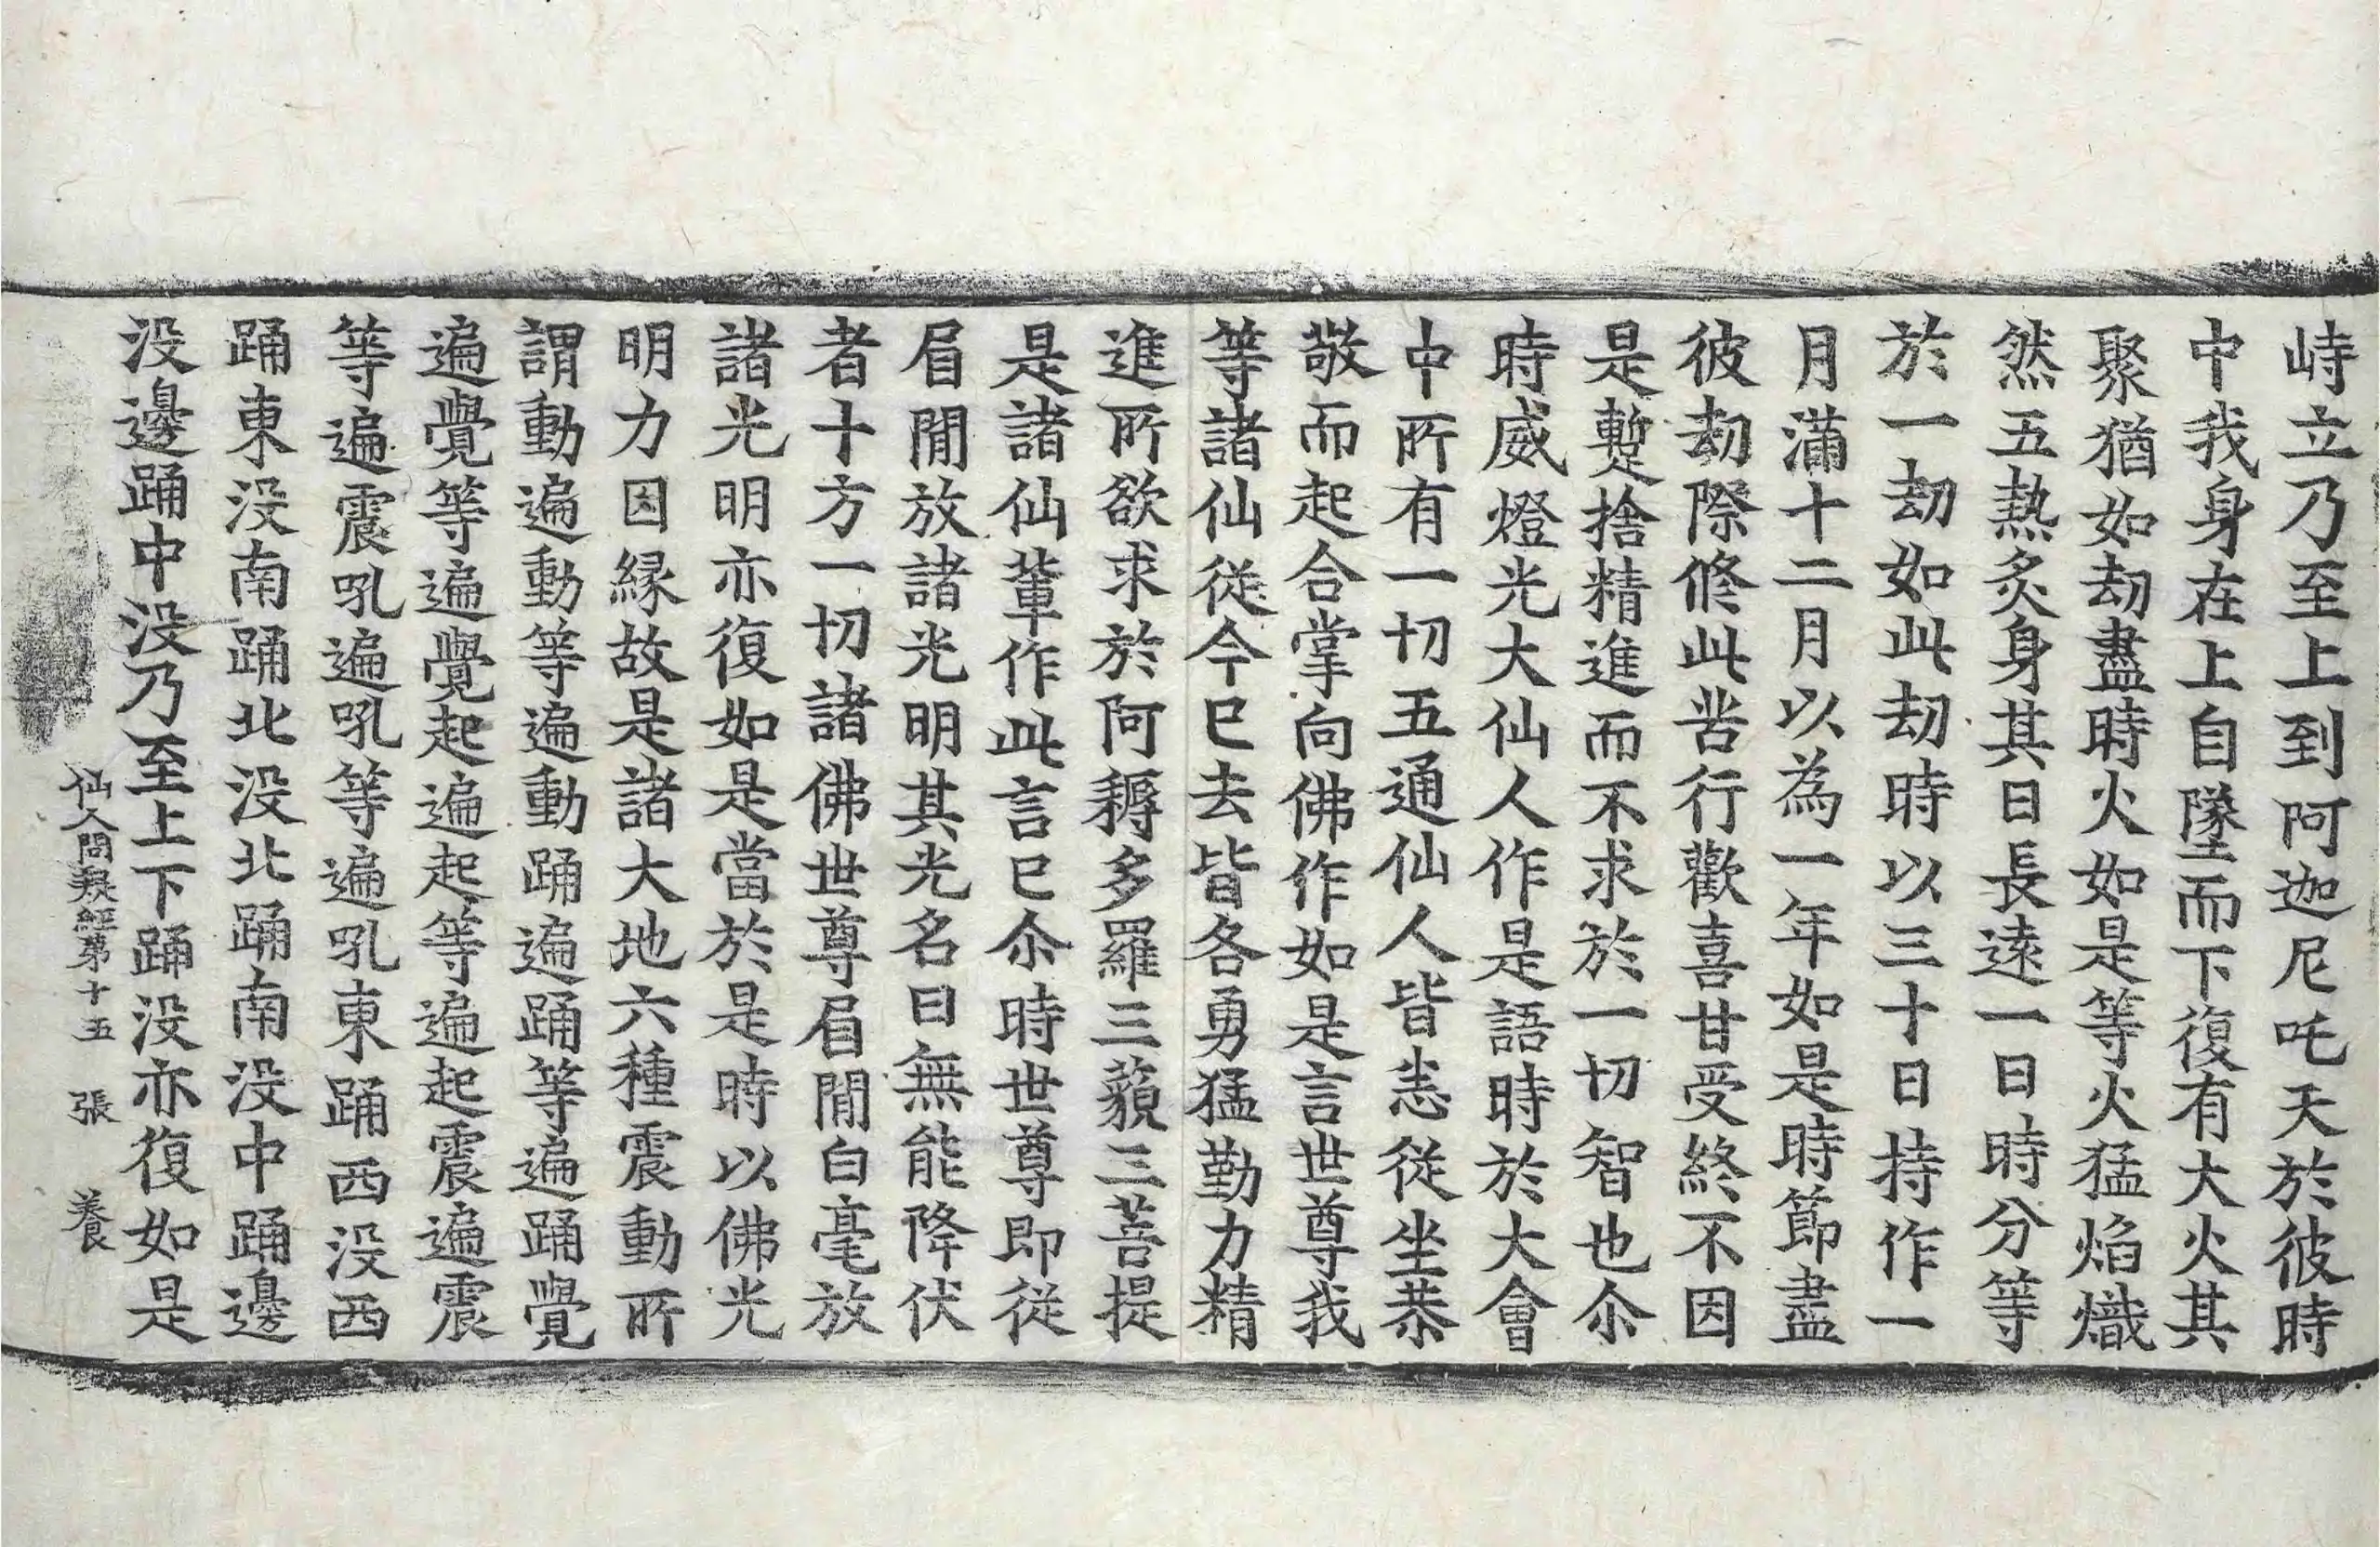 峙立乃至上到阿迦尼吒天於彼時
中我身在上自墬而下復有大火其
聚猶如劫盡時火如是等火猛焰熾
然五熱炙身其日長遠一日時分等
於一劫如此劫時以三十日持作一
月滿十二月以為一年如是時節盡
彼劫際修此苦行歡喜甘受終不因
是蹔捨精進而不求於一切智也尒
時威燈光大仙人作是語時於大會
中所有一切五通仙人皆悉從坐恭
敬而起合掌向佛作如是言世尊我
等諸仙從今已去皆各勇猛勤力精
進所欲求於阿耨多羅三藐三菩提
是諸仙輩作此言已尒時世尊即從
眉間放諸光明其光名曰無能降伏
者十方一切諸佛世尊眉間白毫放
諸光明亦復如是當於是時以佛光
明力因緣故是諸大地六種震動所
謂動遍動等遍動踊遍踊等遍踊覺
遍覺等遍覺起遍起等遍起震遍震
等遍震吼遍吼等遍吼東踊西没西
踊東没南踊北没北踊南没中踊邊
没邊踊中没乃至上下踊没亦復如是
仙人問疑經第十五 張 養